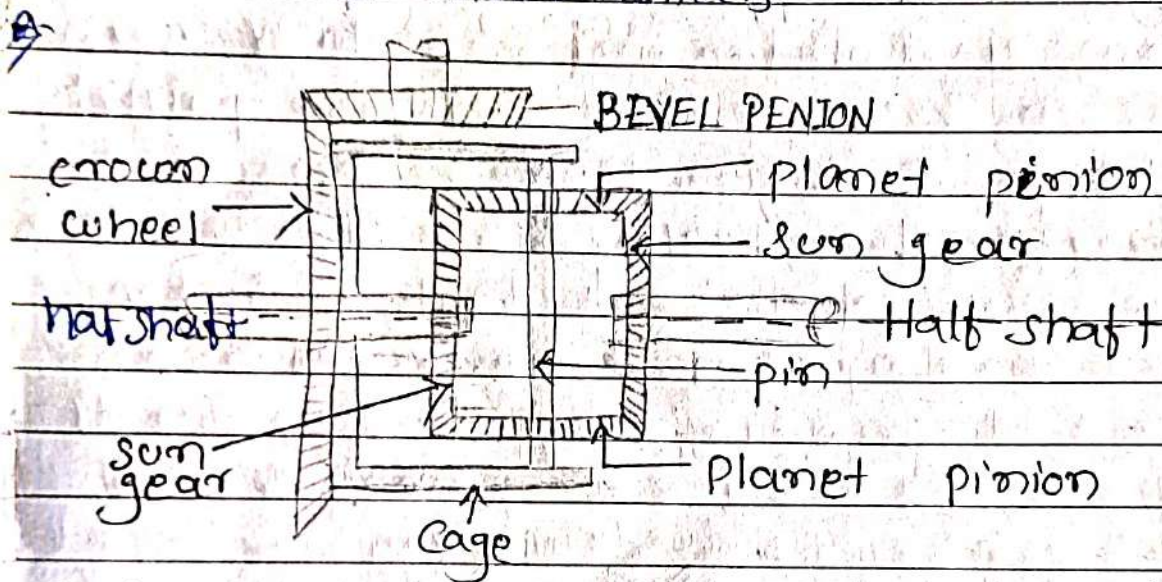 BEVEL PENION
crown
wheel
planet pinion
sun gear
hafshaft
Half shaft
pin
sun
gear
Planet pinion
Cage